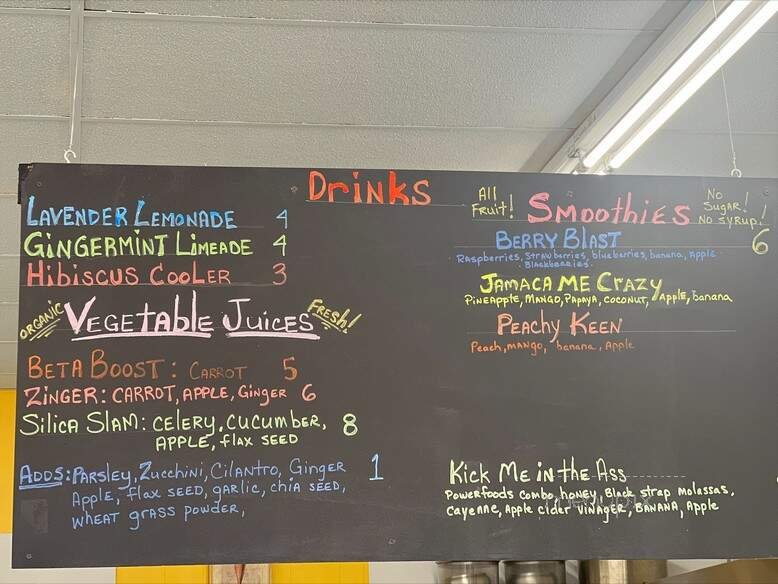 Drinks
LAVENDER LEMONADE 4
GINGERMINT LIMEADE 4
HIBISCUS COOLER 3
ORGANIC VEGETABLE JUICES FRESH!
BETA BOOST: CARROT 5
ZINGER: CARROT, APPLE, GINGER 6
SILICA SLAM: CELERY, CUCUMBER, 8
APPLE, flax SEED
ADDS: PARSLEY, Zucchini, Cilantro, Ginger 1
Apple, flax seed, garlic, chia SEED,
WHEAT grass POWDER,
All Fruit! Smoothies No Sugar! No SYRUP!
BERRY BLAST 6
Raspberries, Strawberries, blueberries, banana, Apple
Blackberries
JAMACA ME CRAZY
PINEAPPLE, MANGO, PAPAYA, COCONUT, APPLE, banana
PEACHY KEEN
Peach, MANGO, banana, Apple
Kick Me in the Ass
Powerfoods combo, honey, Black strap molassas,
Cayenne, Apple cider VINAGER, BANANA, Apple